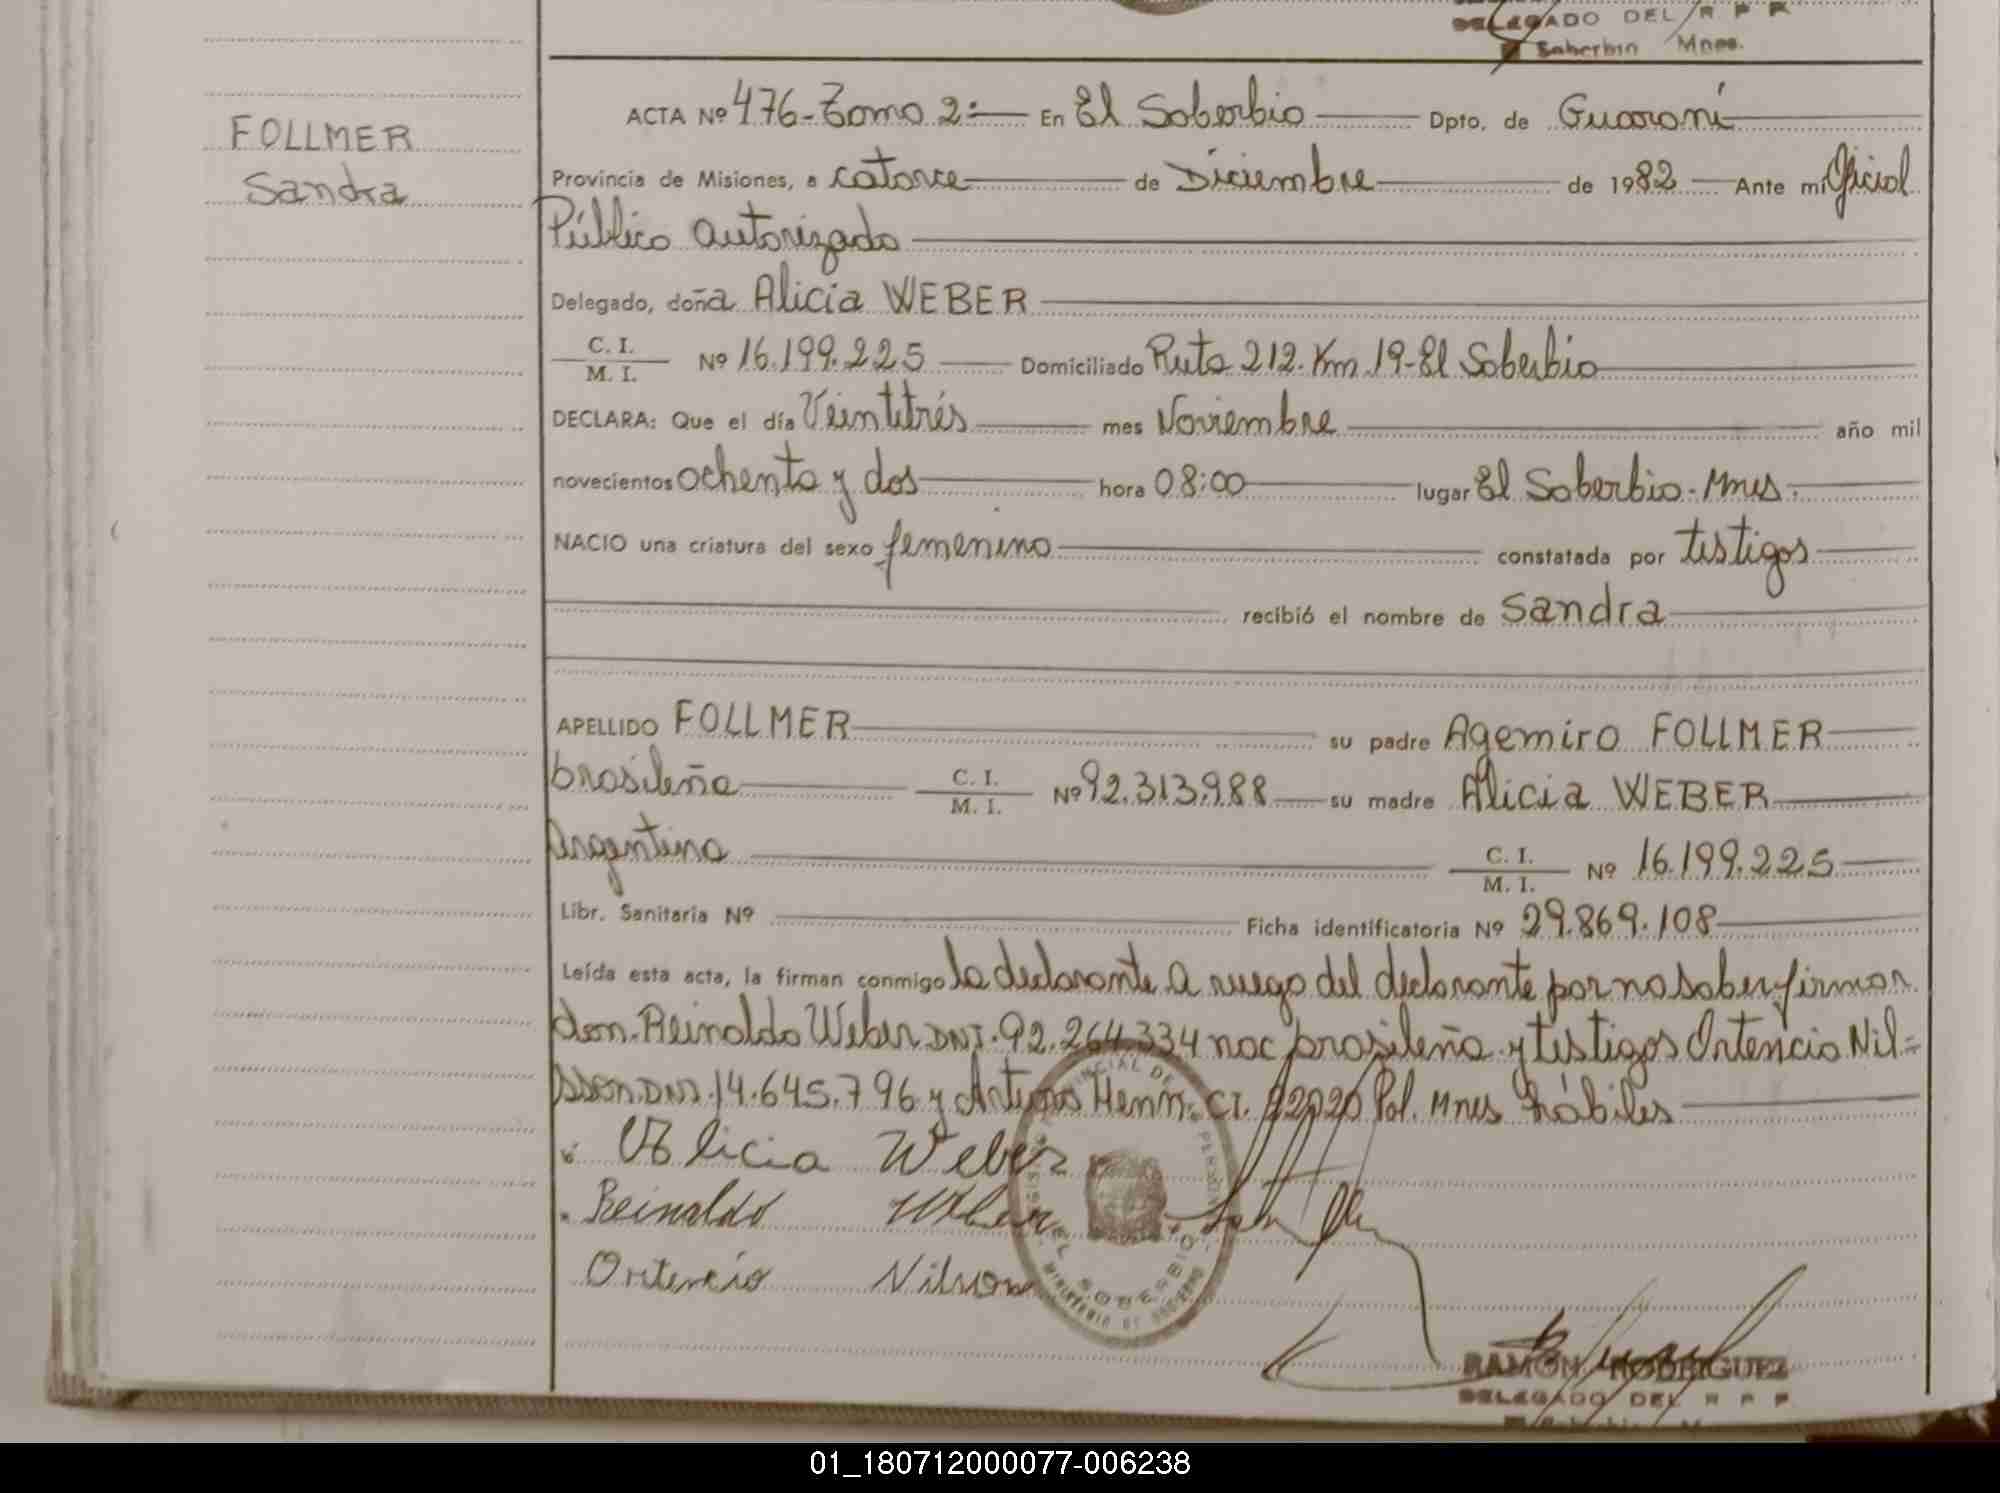 DELEGADO DEL R P P
Soberbio Mnes.
FOLLMER
Sandra
ACTA Nº 476-Tomo 2:- En El Soberbio Dpto. de Guaraní
Provincia de Misiones, a catorce de Diciembre de 1982 Ante mí Oficial
Público autorizado
Delegado, doña Alicia WEBER
C. I.
M. I. Nº 16.199.225 Domiciliado Ruta 212. Km 19-El Soberbio
DECLARA: Que el día Veintitrés mes Noviembre año mil
novecientos ochenta y dos hora 08:00 lugar El Soberbio-Mnes.
NACIO una criatura del sexo femenino constatada por testigos
recibió el nombre de Sandra
APELLIDO FOLLMER su padre Agemiro FOLLMER
brasileña C. I. M. I. Nº 92.313.988 su madre Alicia WEBER
Argentina C. I. M. I. Nº 16.199.225
Libr. Sanitaria Nº Ficha identificatoria Nº 29.869.108
Leída esta acta, la firman conmigo la declarante A ruego del declarante por no saber firmar
don Reinaldo Weber DNI. 92.264.334 nac brasileña y testigos Ortencio Nil=
sson DNI. 14.645.796 y Arturo Henn. CI. 92020 Pol. Mnes hábiles
Alicia Weber
Reinaldo Weber
Ortencio Nilson
PROVINCIAL DE
EL SOBERBIO
MINISTERIO DE GOBIERNO
RAMON RODRIGUEZ
DELEGADO DEL R P P
01_180712000077-006238